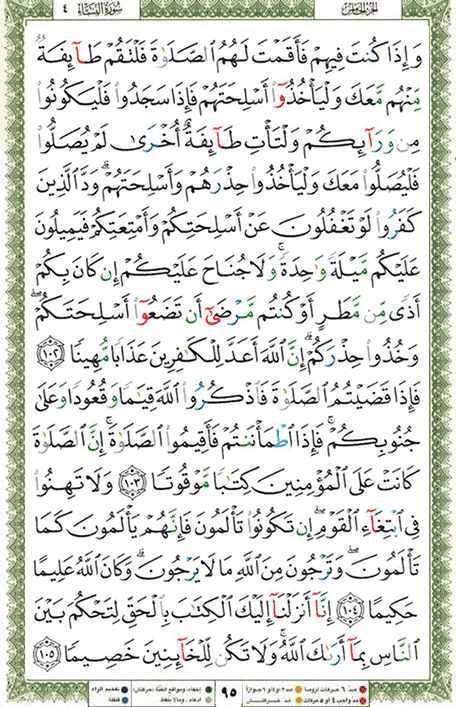 الجزء الخامس
سورة النساء ٤
وَإِذَا كُنتَ فِيهِمْ فَأَقَمْتَ لَهُمُ ٱلصَّلَوٰةَ فَلْتَقُمْ طَآئِفَةٌ
مِّنْهُم مَّعَكَ وَلْيَأْخُذُوٓا۟ أَسْلِحَتَهُمْ فَإِذَا سَجَدُوا۟ فَلْيَكُونُوا۟
مِن وَرَآئِكُمْ وَلْتَأْتِ طَآئِفَةٌ أُخْرَىٰ لَمْ يُصَلُّوا۟
فَلْيُصَلُّوا۟ مَعَكَ وَلْيَأْخُذُوا۟ حِذْرَهُمْ وَأَسْلِحَتَهُمْ ۗ وَدَّ ٱلَّذِينَ
كَفَرُوا۟ لَوْ تَغْفُلُونَ عَنْ أَسْلِحَتِكُمْ وَأَمْتِعَتِكُمْ فَيَمِيلُونَ
عَلَيْكُم مَّيْلَةً وَٰحِدَةً ۚ وَلَا جُنَاحَ عَلَيْكُمْ إِن كَانَ بِكُمْ
أَذًى مِّن مَّطَرٍ أَوْ كُنتُم مَّرْضَىٰٓ أَن تَضَعُوٓا۟ أَسْلِحَتَكُمْ ۖ
وَخُذُوا۟ حِذْرَكُمْ ۗ إِنَّ ٱللَّهَ أَعَدَّ لِلْكَٰفِرِينَ عَذَابًا مُّهِينًا ١٠٢
فَإِذَا قَضَيْتُمُ ٱلصَّلَوٰةَ فَٱذْكُرُوا۟ ٱللَّهَ قِيَٰمًا وَقُعُودًا وَعَلَىٰ
جُنُوبِكُمْ ۚ فَإِذَا ٱطْمَأْنَنتُمْ فَأَقِيمُوا۟ ٱلصَّلَوٰةَ ۚ إِنَّ ٱلصَّلَوٰةَ
كَانَتْ عَلَى ٱلْمُؤْمِنِينَ كِتَٰبًا مَّوْقُوتًا ١٠٣ وَلَا تَهِنُوا۟
فِى ٱبْتِغَآءِ ٱلْقَوْمِ ۖ إِن تَكُونُوا۟ تَأْلَمُونَ فَإِنَّهُمْ يَأْلَمُونَ كَمَا
تَأْلَمُونَ ۖ وَتَرْجُونَ مِنَ ٱللَّهِ مَا لَا يَرْجُونَ ۗ وَكَانَ ٱللَّهُ عَلِيمًا
حَكِيمًا ١٠٤ إِنَّآ أَنزَلْنَآ إِلَيْكَ ٱلْكِتَٰبَ بِٱلْحَقِّ لِتَحْكُمَ بَيْنَ
ٱلنَّاسِ بِمَآ أَرَىٰكَ ٱللَّهُ ۚ وَلَا تَكُن لِّلْخَآئِنِينَ خَصِيمًا ١٠٥
مد ٦ حركات لزوماً مد ٢ او ٤ او ٦ جوازاً
مد واجب ٤ او ٥ حركات مد حركتان
٩٥
إخفاء، ومواقع الغنّة (حركتان) تفخيم الراء
ادغام، وما لا يلفظ قلقلة